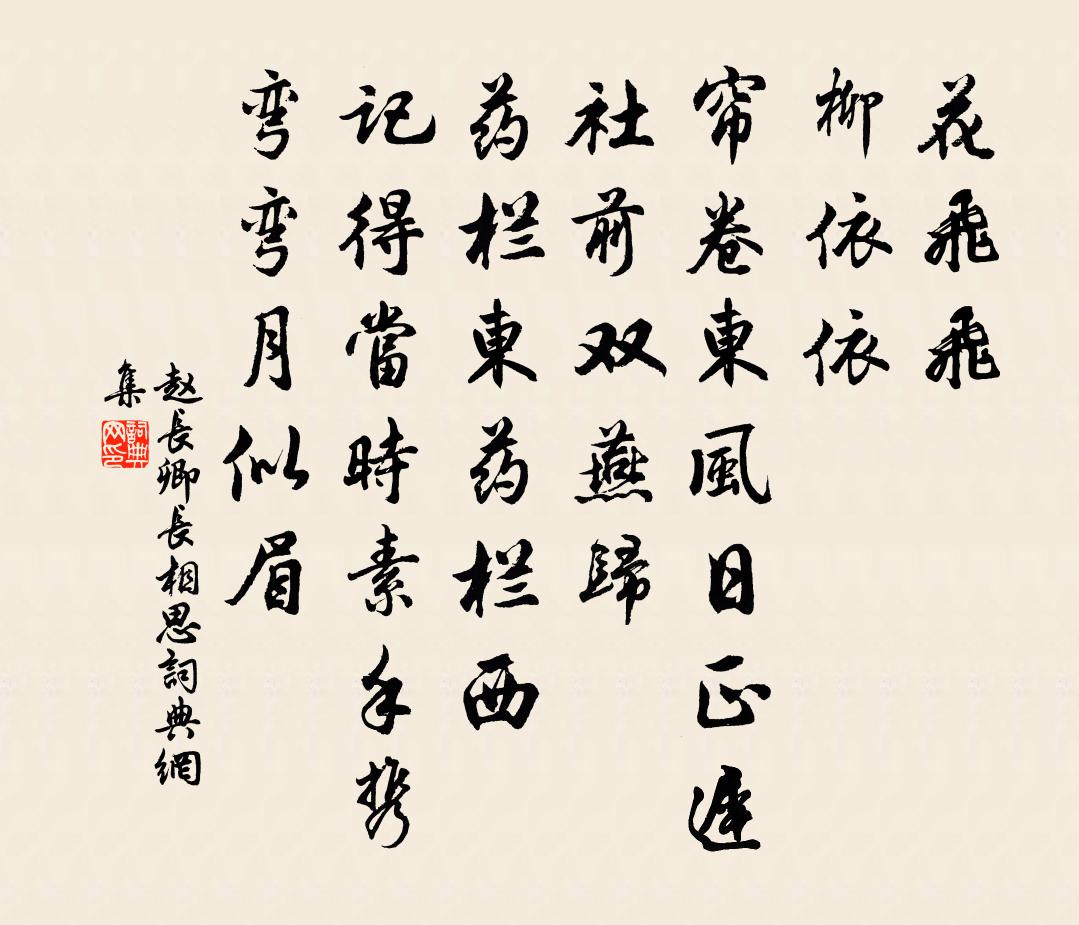 花飛飛
柳依依
帘卷東風日正遲
社前双燕歸
药栏東药栏西
記得當時素手携
弯弯月似眉
赵長卿長相思詞典網
集
詞典網印